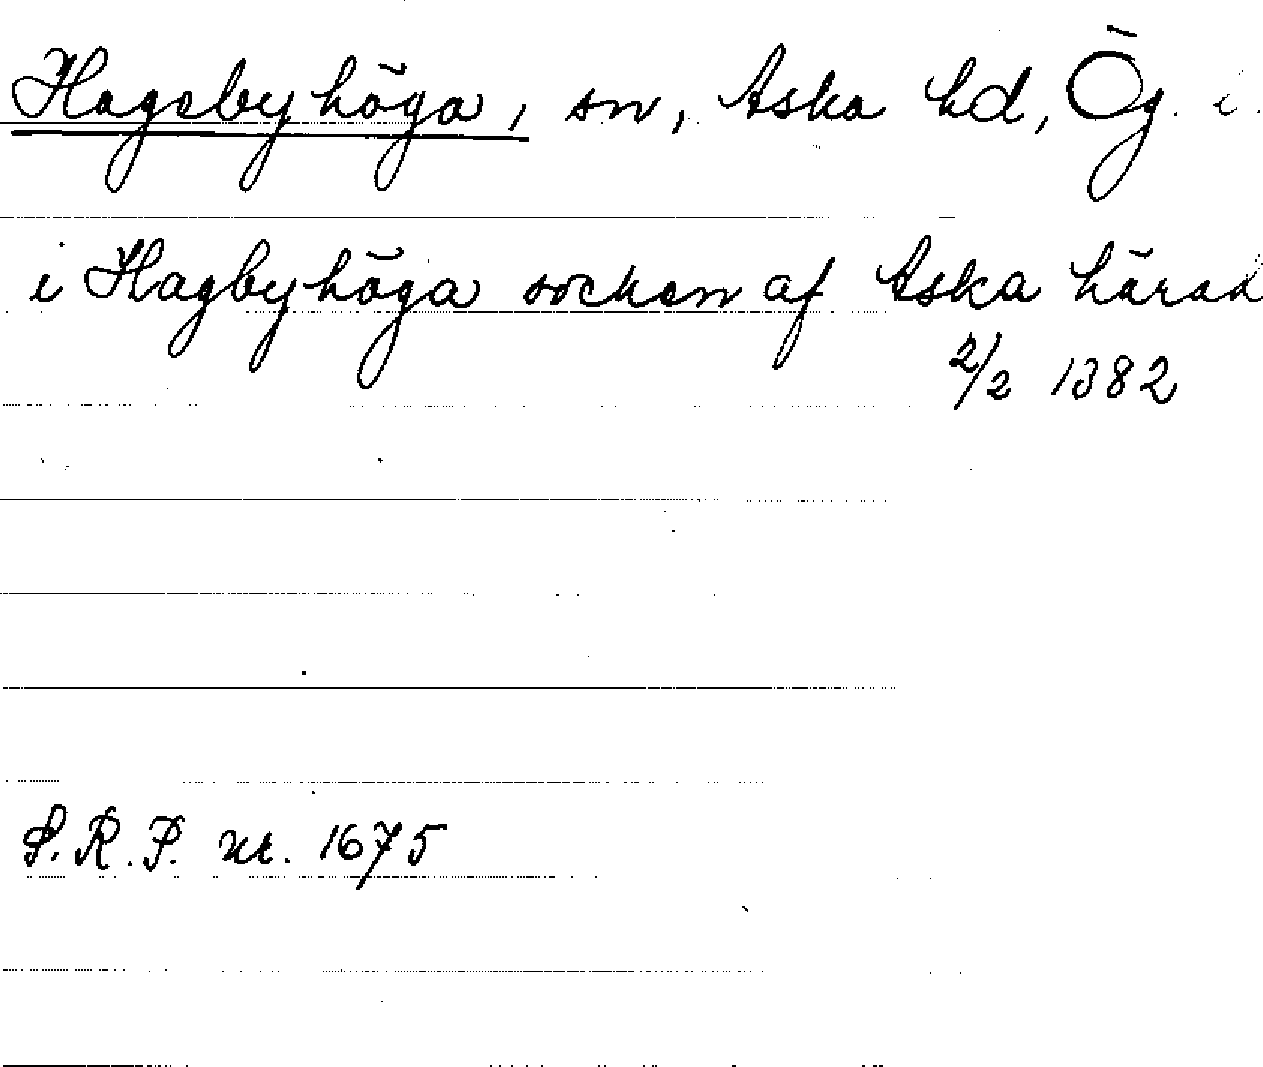 Hagebyhöga, sn, Aska hd, Ög. i.
i Hagbyhöga socken af Aska härad
2/2 1382
S.R.P. nr. 1675